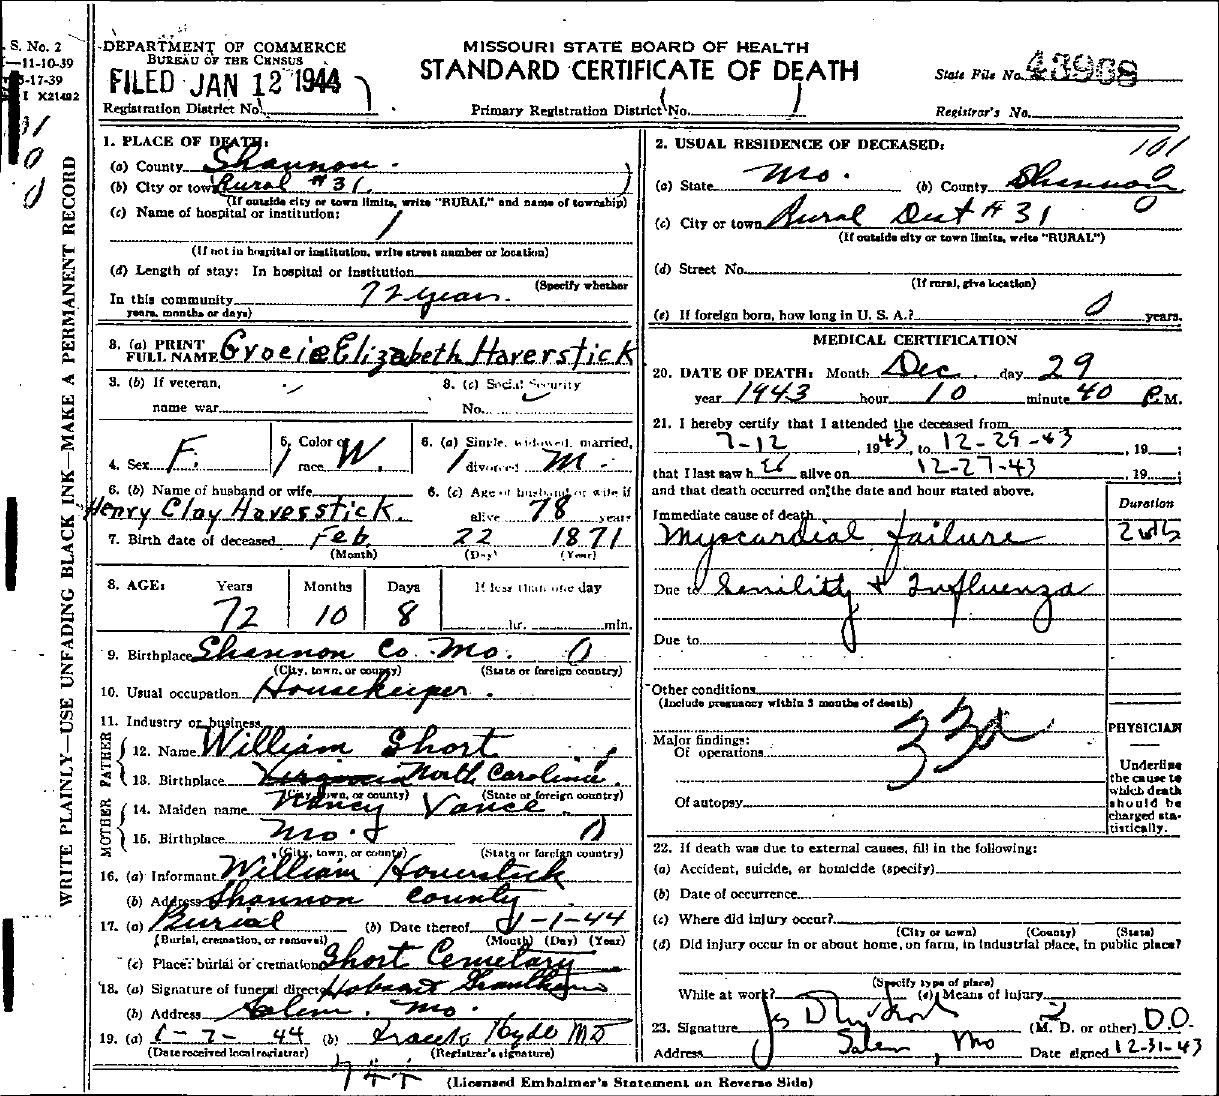 S. No. 2
11-10-39
5-17-39
I X21492
WRITE PLAINLY—USE UNFADING BLACK INK—MAKE A PERMANENT RECORD
DEPARTMENT OF COMMERCE
BUREAU OF THE CENSUS
FILED JAN 12 1944
Registration District No.
MISSOURI STATE BOARD OF HEALTH
STANDARD CERTIFICATE OF DEATH
Primary Registration District No.
State File No. 43968
Registrar's No.
1. PLACE OF DEATH:
(a) County Shannon.
(b) City or town Rural #31
(If outside city or town limits, write "RURAL" and name of township)
(c) Name of hospital or institution:
(If not in hospital or institution, write street number or location)
(d) Length of stay: In hospital or institution
(Specify whether
In this community 72 years.
years, months or days)
3. (a) PRINT FULL NAME Gracie Elizabeth Haverstick
3. (b) If veteran, name war
3. (c) Social Security No.
4. Sex F.
5. Color or race W.
6. (a) Single, widowed, married, divorced M.
6. (b) Name of husband or wife
Henry Clay Haverstick.
6. (c) Age of husband or wife if alive 78 years
7. Birth date of deceased Feb. 22 1871
(Month) (Day) (Year)
8. AGE: Years Months Days If less than one day
72 10 8 hr. min.
9. Birthplace Shannon Co. Mo. 0
(City, town, or county) (State or foreign country)
10. Usual occupation Housekeeper.
11. Industry or business
FATHER
12. Name William Short
13. Birthplace Virginia North Carolina.
(City, town, or county) (State or foreign country)
MOTHER
14. Maiden name Nancy Vance.
15. Birthplace Mo. 0
(City, town, or county) (State or foreign country)
16. (a) Informant William Haverstick
(b) Address Shannon County
17. (a) Burial (b) Date thereof 1-1-44
(Burial, cremation, or removal) (Month) (Day) (Year)
(c) Place: burial or cremation Short Cemetary
18. (a) Signature of funeral director Hobart
(b) Address Salem, Mo.
19. (a) 1-7-44 (b) Hyde MD
(Date received local registrar) (Registrar's signature)
2. USUAL RESIDENCE OF DECEASED: 101
(a) State Mo. (b) County Shannon 0
(c) City or town Rural Dist #31 0
(If outside city or town limits, write "RURAL")
(d) Street No.
(If rural, give location)
(e) If foreign born, how long in U. S. A.? 0 years.
MEDICAL CERTIFICATION
20. DATE OF DEATH: Month Dec. day 29
year 1943 hour 10 minute 40 P.M.
21. I hereby certify that I attended the deceased from
7-12, 1943, to 12-29-43, 19 ;
that I last saw her alive on 12-27-43, 19 ;
and that death occurred on the date and hour stated above.
Duration
Immediate cause of death
Myocardial failure 2 wks
Due to Senility & Influenza
Due to
Other conditions
(Include pregnancy within 3 months of death)
33a
Major findings:
Of operations
Of autopsy
PHYSICIAN
Underline the cause to which death should be charged statistically.
22. If death was due to external causes, fill in the following:
(a) Accident, suicide, or homicide (specify)
(b) Date of occurrence
(c) Where did injury occur?
(City or town) (County) (State)
(d) Did injury occur in or about home, on farm, in industrial place, in public place?
(Specify type of place)
While at work? (e) Means of injury
23. Signature (M. D. or other) D.O.
Address Salem, Mo Date signed 12-31-43
(Licensed Embalmer's Statement on Reverse Side)